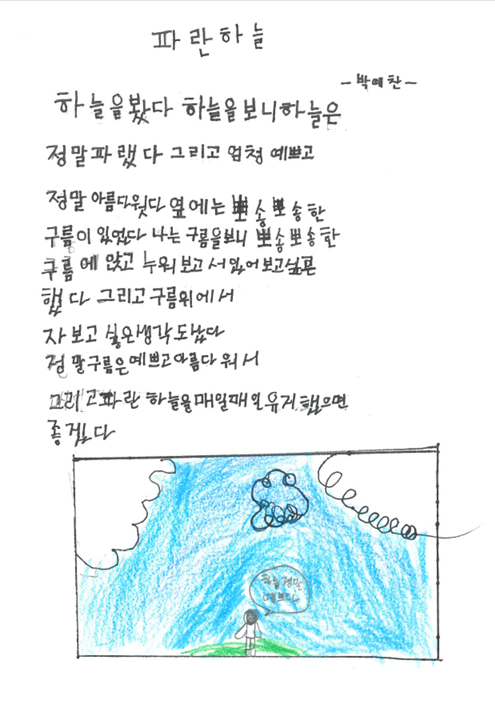 파란하늘
-박예찬-
하늘을봤다 하늘을보니하늘은
정말파랬다 그리고 엄청 예쁘고
정말아름다웟다 옆에는 뽀송뽀송한
구름이 있었다 나는 구름을보니 뽀송뽀송한
구름에 앉고 누워보고서있어보고싶
했다 그리고구름위에서
자보고 싶은생각도났다
정말구름은예쁘고아름다워서
그리고파란 하늘을매일매일 유지했으면
좋겠다
하늘정말
예쁘다